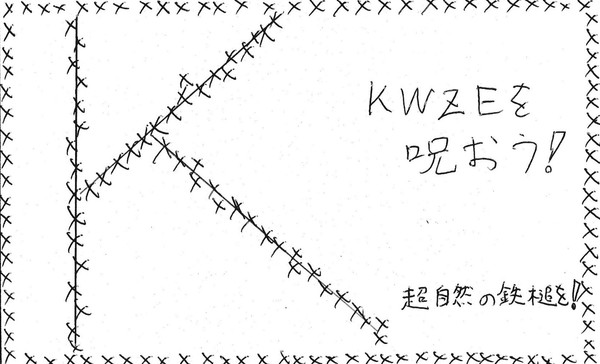 K
KWZEを
呪おう!
超自然の鉄槌を!